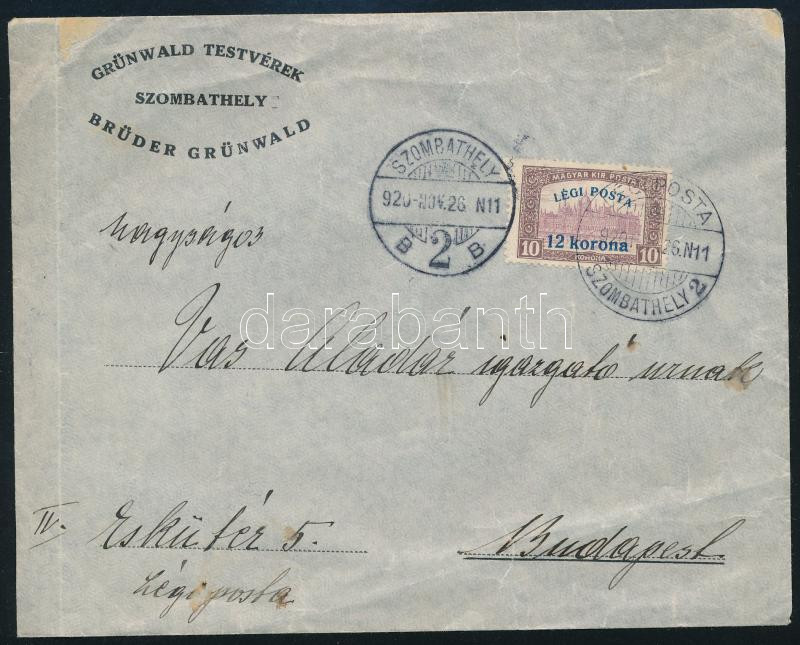 GRÜNWALD TESTVÉREK
SZOMBATHELY
BRÜDER GRÜNWALD
SZOMBATHELY
920-NOV.26 N11
B 2 B
MAGYAR KIR. POSTA
LÉGI POSTA
12 korona
10 10
KORONA
POSTA
26.N11
SZOMBATHELY 2
Nagyságos
darabanth
Vas Aladár igazgató urnak
IV. Eskü tér 5.
Budapest.
Légi posta